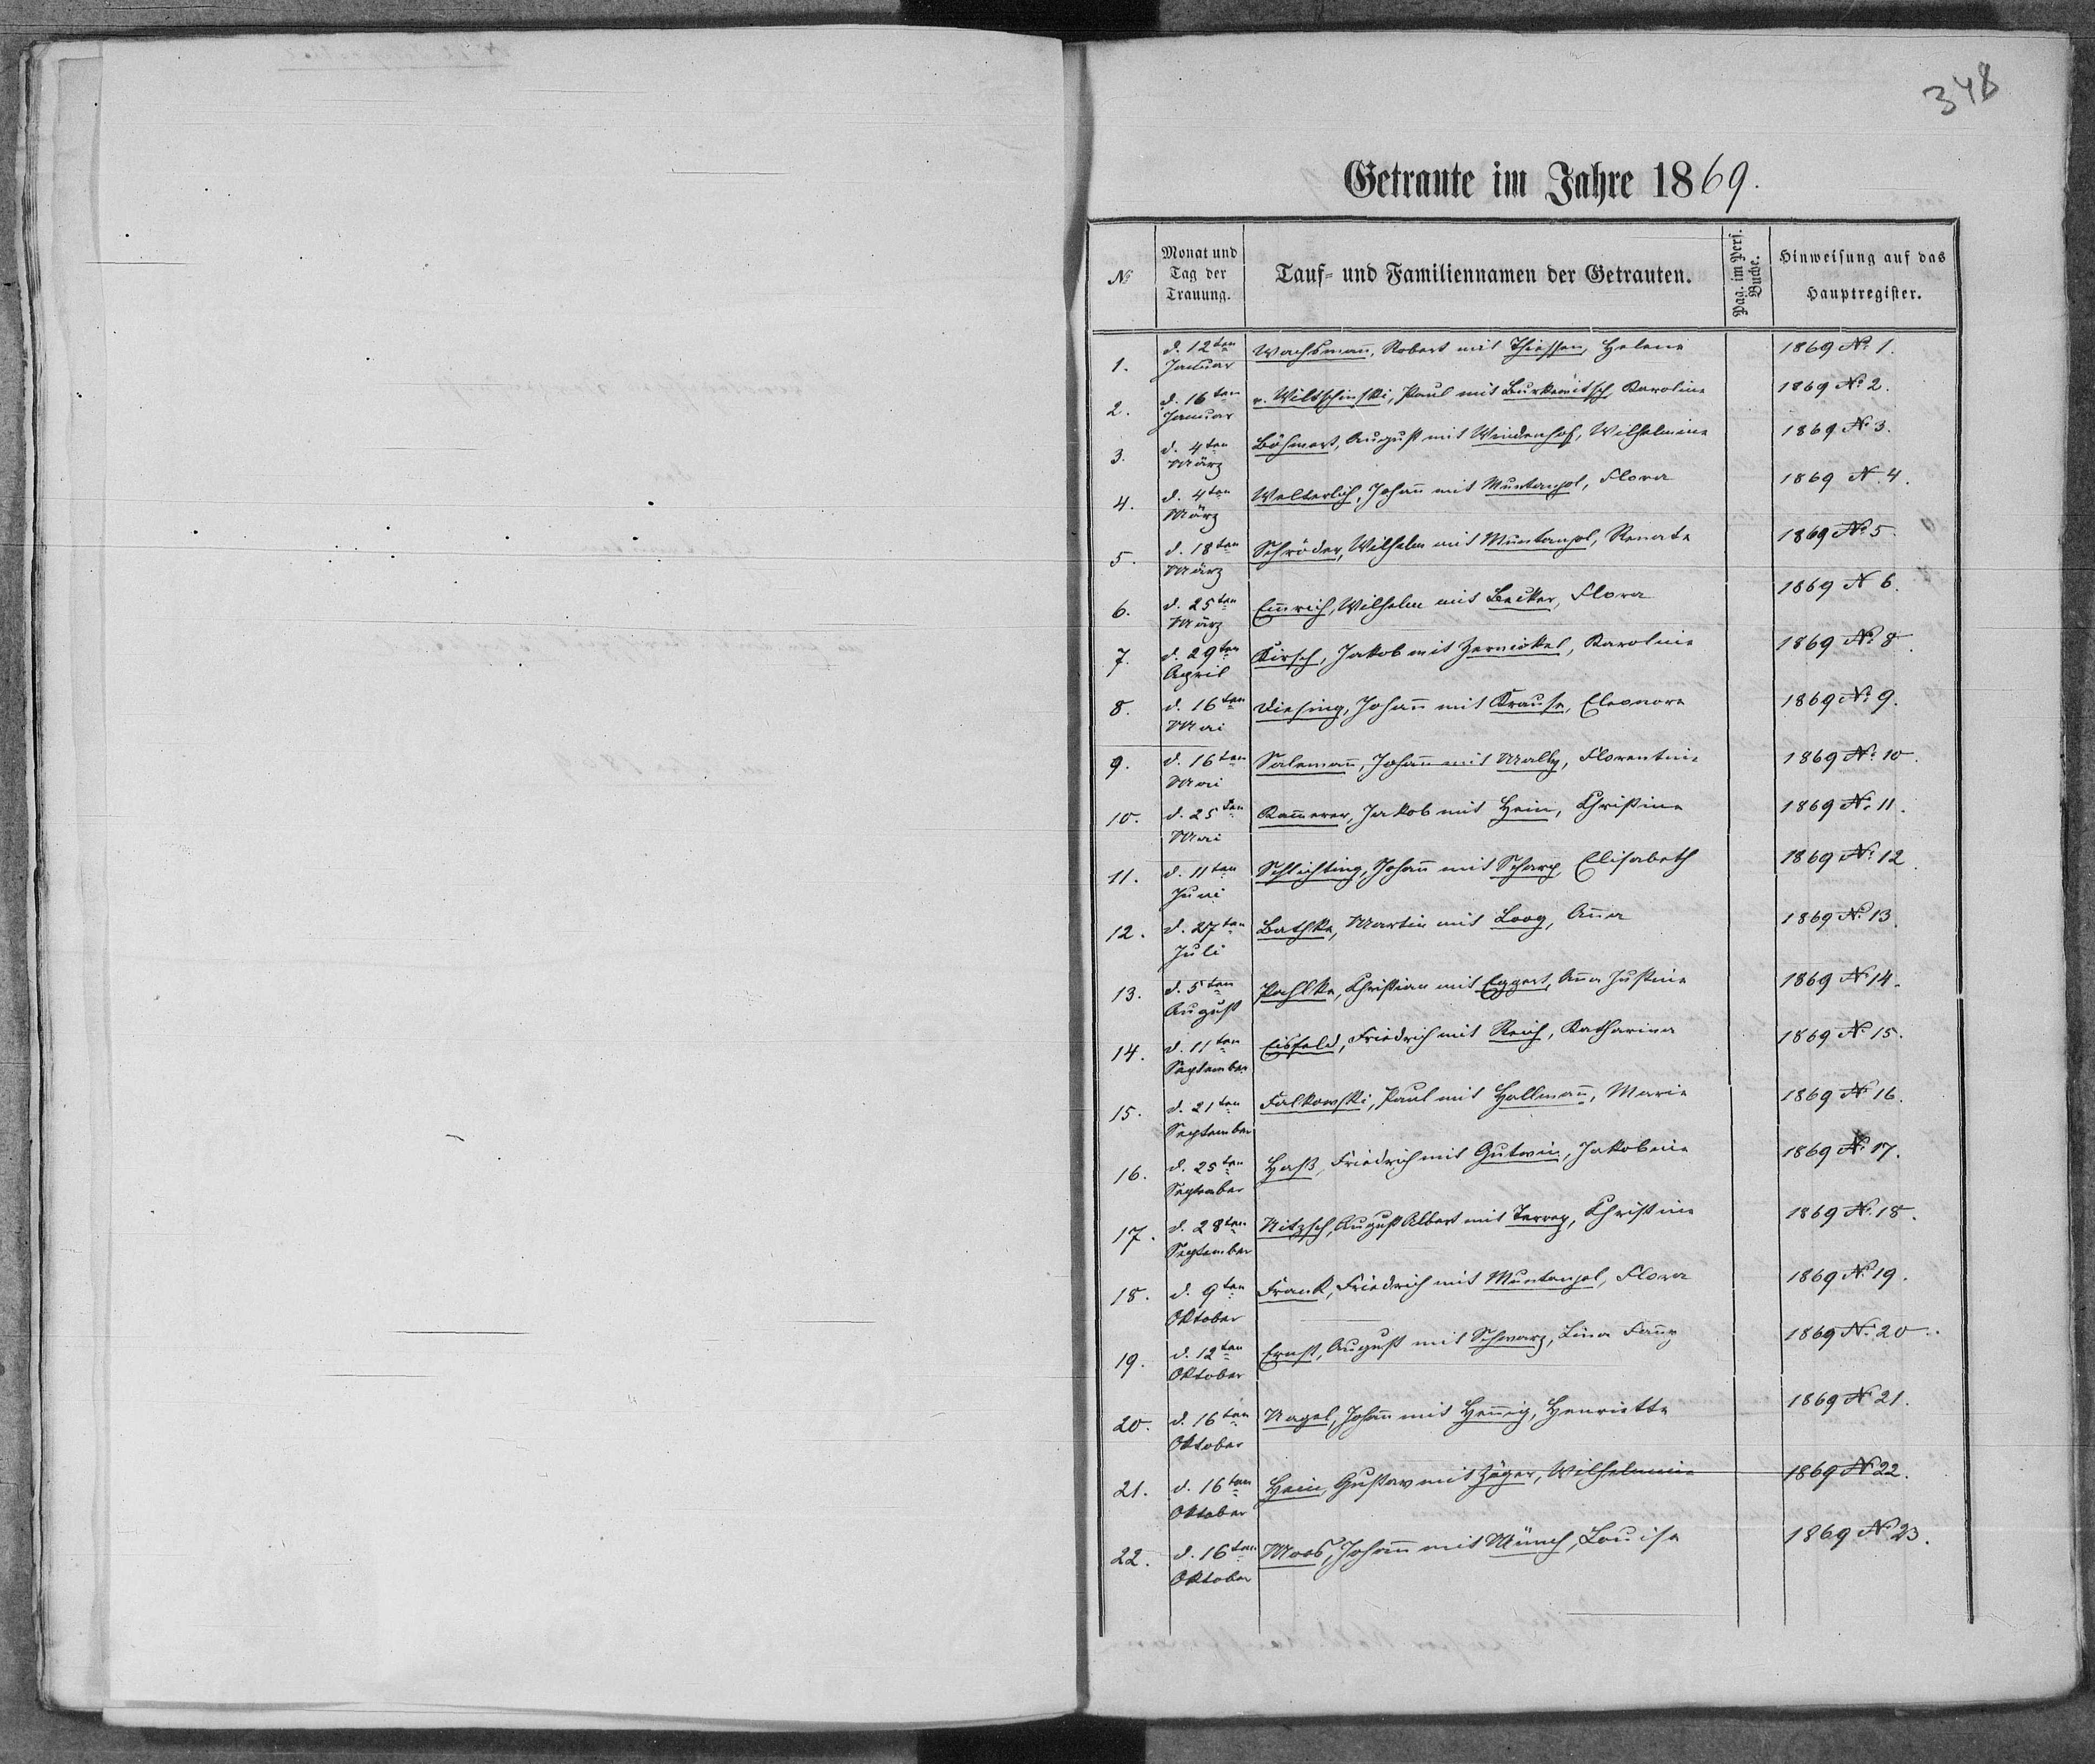 348
Getraute im Jahre 1869.
№ Monat und Tag der Trauung. Tauf- und Familiennamen der Getrauten. Pag. im Pers. Buche. Hinweisung auf das Hauptregister.
1. d. 12ten Januar Wachsmañ, Robert mit Thiessen, Helene 1869 № 1.
2. d. 16ten Januar v. Wiltschinski, Paul mit Burkewitsch, Karoline 1869 № 2.
3. d. 4ten März Böhmert, August mit Windenhof, Wilhelmine 1869 № 3.
4. d. 4ten März Welterlich, Johañ mit Muntanjol, Flora 1869 N. 4.
5. d. 18ten März Schröder, Wilhelm mit Muntanjol, Renate 1869 № 5.
6. d. 25ten März Em̃rich, Wilhelm mit Becker, Flora 1869 N 6.
7. d. 29ten April Kirsch, Jakob mit Zernickel, Karoline 1869 № 8.
8. d. 16ten Mai Diesing, Johañ mit Krause, Eleonore 1869 № 9.
9. d. 16ten Mai Salemañ, Johañ mit Mally, Florentine 1869 № 10.
10. d. 25ten Mai Kam̃erer, Jakob mit Hein, Christine 1869 № 11.
11. d. 11ten Juni Schlichting, Johañ mit Scharp, Elisabeth 1869 № 12.
12. d. 27ten Juli Bathke, Martin mit Loog, Aña 1869 № 13.
13. d. 5ten August Pahlke, Christian mit Eggert, Aña Justine 1869 № 14.
14. d. 11ten September Eisfeld, Friedrich mit Reich, Katharina 1869 № 15.
15. d. 21ten September Falkowski, Paul mit Hallmañ, Marie 1869 № 16.
16. d. 25ten September Haß, Friedrich mit Gutwin, Jakobine 1869 № 17.
17. d. 28ten September Nitzsch, August Albert mit Terrey, Christine 1869 № 18.
18. d. 9ten Oktober Frank, Friedrich mit Muntanjol, Flora 1869 № 19.
19. d. 12ten Oktober Ernst, August mit Schwarz, Lina Fañy 1869 № 20.
20. d. 16ten Oktober Nagel, Johañ mit Heñig, Henriette 1869 № 21.
21. d. 16ten Oktober Hein, Gustav mit Jäger, Wilhelmine 1869 № 22.
22. d. 16ten Oktober Moos, Johañ mit Münch, Louise 1869 № 23.